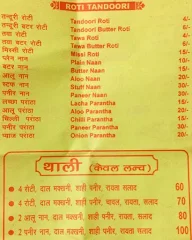 ROTI TANDOORI
तन्दूरी रोटी Tandoori Roti
तन्दूरी बटर रोटी Tandoori Butter Roti 6/-
तवा रोटी Tawa Roti
तवा बटर रोटी Tawa Butter Roti
मिस्सी रोटी Missi Roti 15/-
प्लेन नान Plain Naan
बटर नान Butter Naan
आलू नान Aloo Naan 20/-
स्टफ नान Stuff Naan
पनीर नान Paneer Naan 30/-
लच्छा परांठा Lacha Parantha
आलू परांठा Aloo Parantha 20/-
चिल्ली परांठा Chilli Parantha
पनीर परांठा Paneer Parantha 30/-
प्याज परांठा Onian Parantha 20/-
थाली (केवल लन्च)
4 रोटी, दाल मक्खनी, शाही पनीर, रायता, सलाद 60
4 रोटी, दाल मक्खनी, शाही पनीर, चावल, रायता, सलाद 70
2 आलू नान, दाल मक्खनी, शाही पनीर, रायता, सलाद 80
2 पनीर नान, दाल मक्खनी, शाही पनीर, रायता, सलाद 100